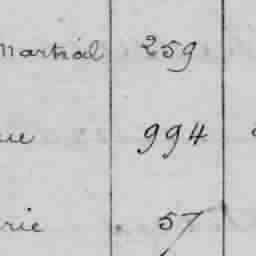 Martial 259
ue 994
rie 57